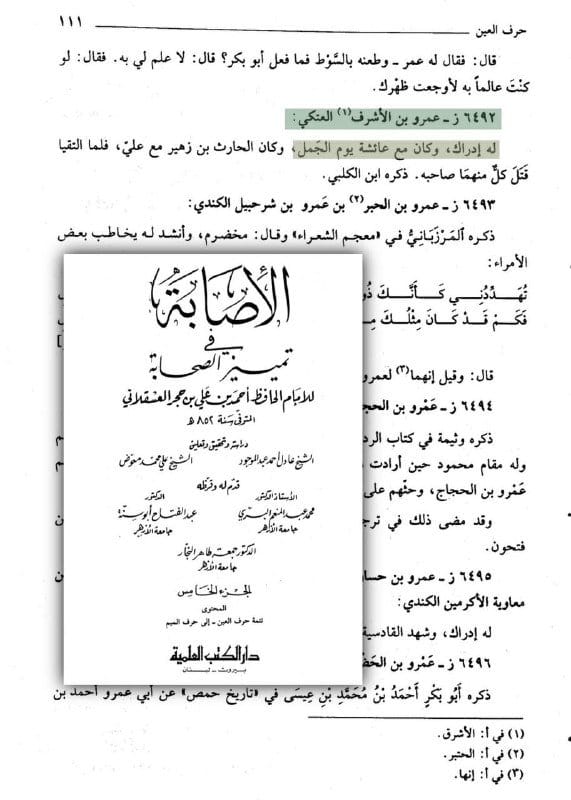 حرف العين ١١١
قال: فقال له عمر ـ وطعنه بالسَّوْط فما فعل أبو بكر؟ قال: لا علم لي به. فقال: لو
كنْتَ عالماً به لأوجعت ظهْرك.
٦٤٩٢ ز ـ عمرو بن الأشرف(١) العتكي:
له إدراك، وكان مع عائشة يوم الجَمل، وكان الحارث بن زهير مع عليّ، فلما التقيا
قَتَلَ كلٌّ منهمَا صاحبه. ذكره ابن الكلبي.
٦٤٩٣ ز ـ عمرو بن الحبر(٢) بن عَمرو بن شرحبيل الكندي:
ذكره المَرْزَبَانِيُّ في «معجم الشعراء» وقال: مخضرم، وأنشد له يخاطب بعض
الأمراء:
تُهَدِّدُنِي كَأَنَّكَ ذُو
فَكَمْ قَدْ كَانَ مِثْلُكَ مِ
قال: وقيل إنهما(٣) لعمرو
٦٤٩٤ ز ـ عَمْرو بن الحجا
ذكره وثيمة في كتاب الرد
وله مقام محمود حين أرادت
عَمْرو بن الحجاج، وحثّهم على
وقد مضى ذلك في ترج
فتحون.
٦٤٩٥ ز ـ عمرو بن حسا
معاوية الأكرمين الكندي:
له إدراك، وشهد القادسية
٦٤٩٦ ز ـ عَمْرو بن الحَض
ذكره أَبُو بَكْرٍ أَحْمَدُ بْنُ مُحَمَّدِ بْنِ عِيسَى في «تاريخ حمص» عن أبي عمرو أحمد بن
(١) في أ: الأشرق.
(٢) في أ: الحتبر.
(٣) في أ: إنها.
الإصابة
في
تمييز الصحابة
للإمام الحافظ أحمد بن علي بن حجر العسقلاني
المتوفى سنة ٨٥٢ هـ
دراسة وتحقيق وتعليق
الشيخ عادل أحمد عبد الموجود الشيخ علي محمد معوض
قدم له وقرظه
الأستاذ الدكتور الدكتور
محمد عبد المنعم البري عبد الفتاح أبو سنة
جامعة الأزهر جامعة الأزهر
الدكتور جمعة طاهر النجار
جامعة الأزهر
الجزء الخامس
المحتوى
تتمة حرف العين ـ إلى حرف الميم
دار الكتب العلمية
بيروت ـ لبنان